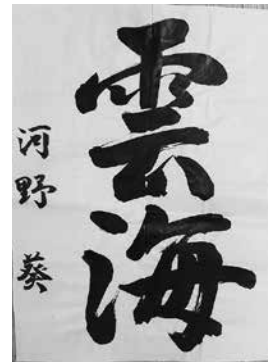 雲海
河野 葵